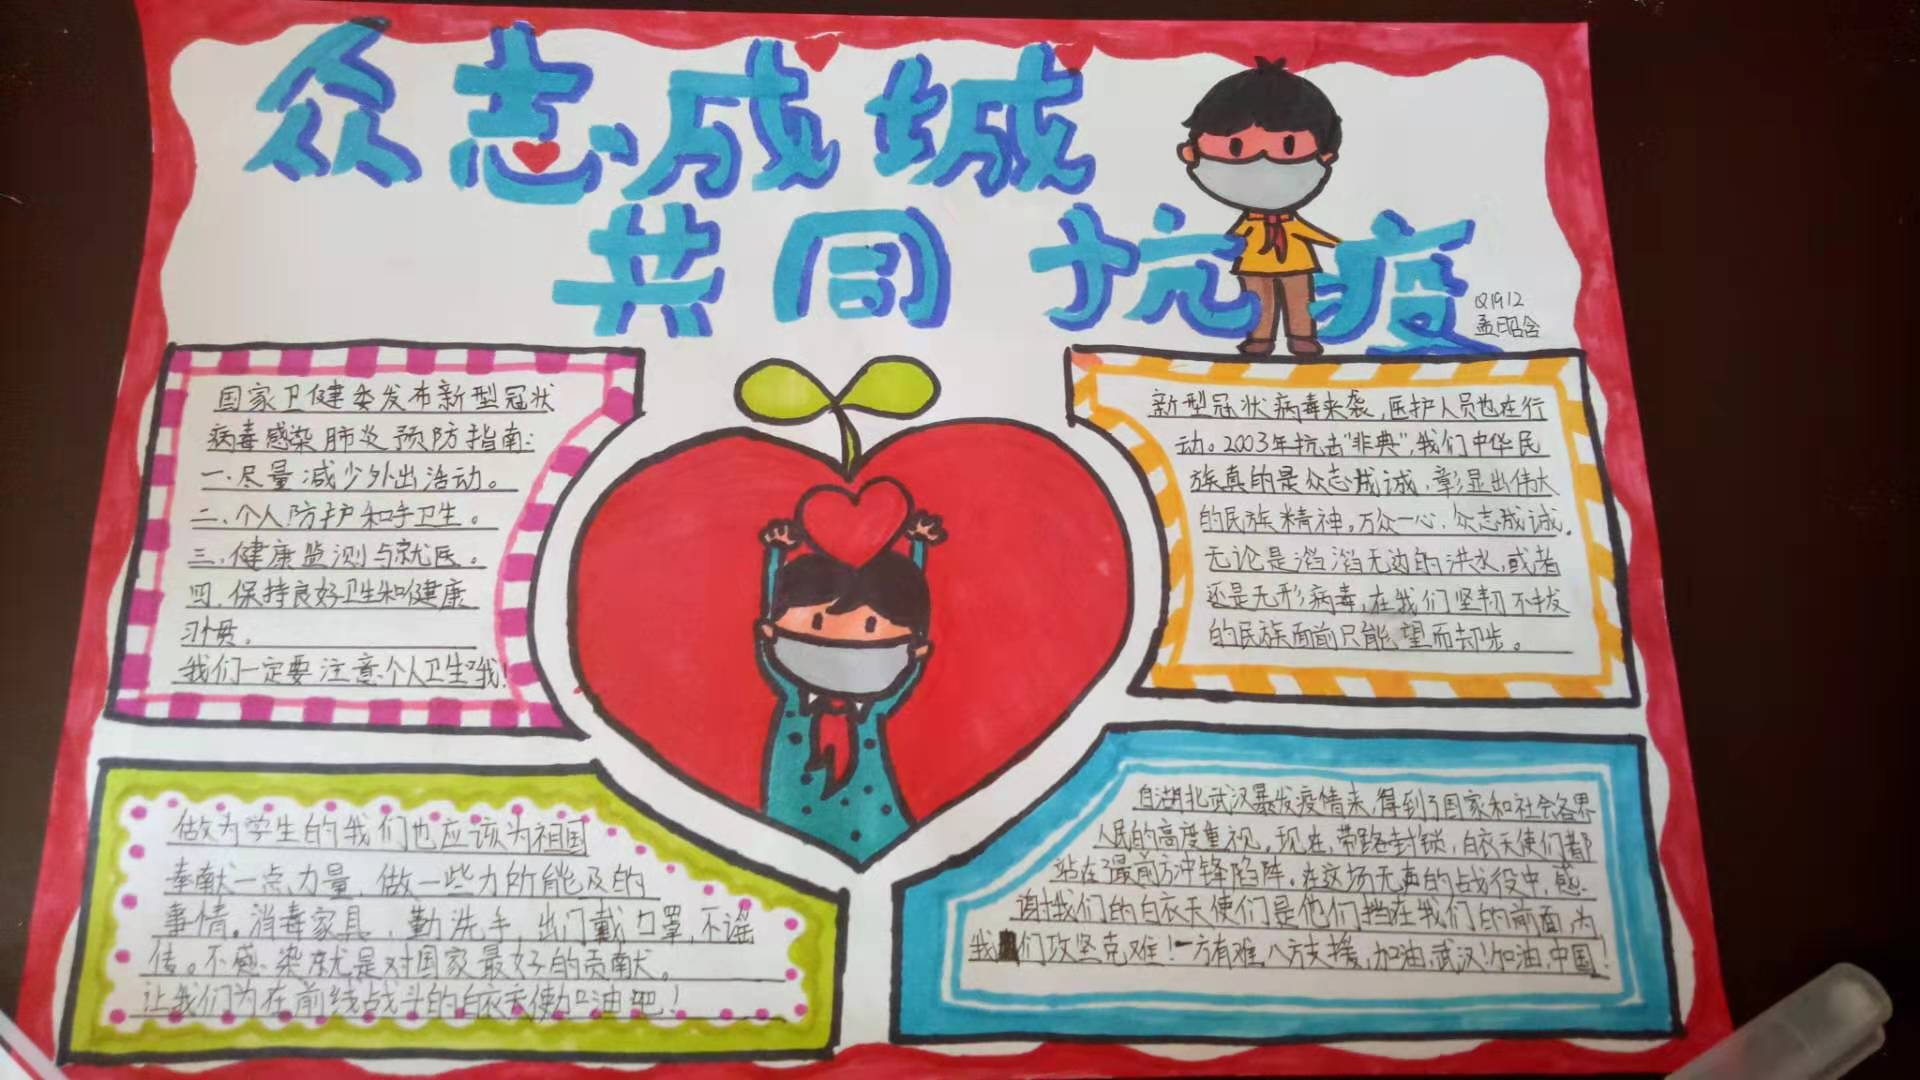 众志成城
共同抗疫
Q1912
孟昭含
国家卫健委发布新型冠状
病毒感染肺炎预防指南:
一.尽量减少外出活动。
二.个人防护和手卫生。
三.健康监测与就医。
四.保持良好卫生和健康
习惯。
我们一定要注意个人卫生哦!
新型冠状病毒来袭,医护人员也在行
动。2003年抗击"非典",我们中华民
族真的是众志成诚,彰显出伟大
的民族精神。万众一心,众志成诚。
无论是滔滔无边的洪水,或者
还是无形病毒,在我们坚韧不拔
的民族面前只能望而却步。
做为学生的我们也应该为祖国
奉献一点力量,做一些力所能及的
事情。消毒家具,勤洗手,出门戴口罩,不谣
传。不感染就是对国家最好的贡献。
让我们为在前线战斗的白衣天使加油吧!
自湖北武汉暴发疫情来,得到了国家和社会各界
人民的高度重视。现在,带路封锁,白衣天使们都
站在了最前方冲锋陷阵。在这场无声的战役中,感
谢我们的白衣天使们是他们挡在我们的前面,为
我们攻坚克难!一方有难,八方支援,加油,武汉!加油,中国!